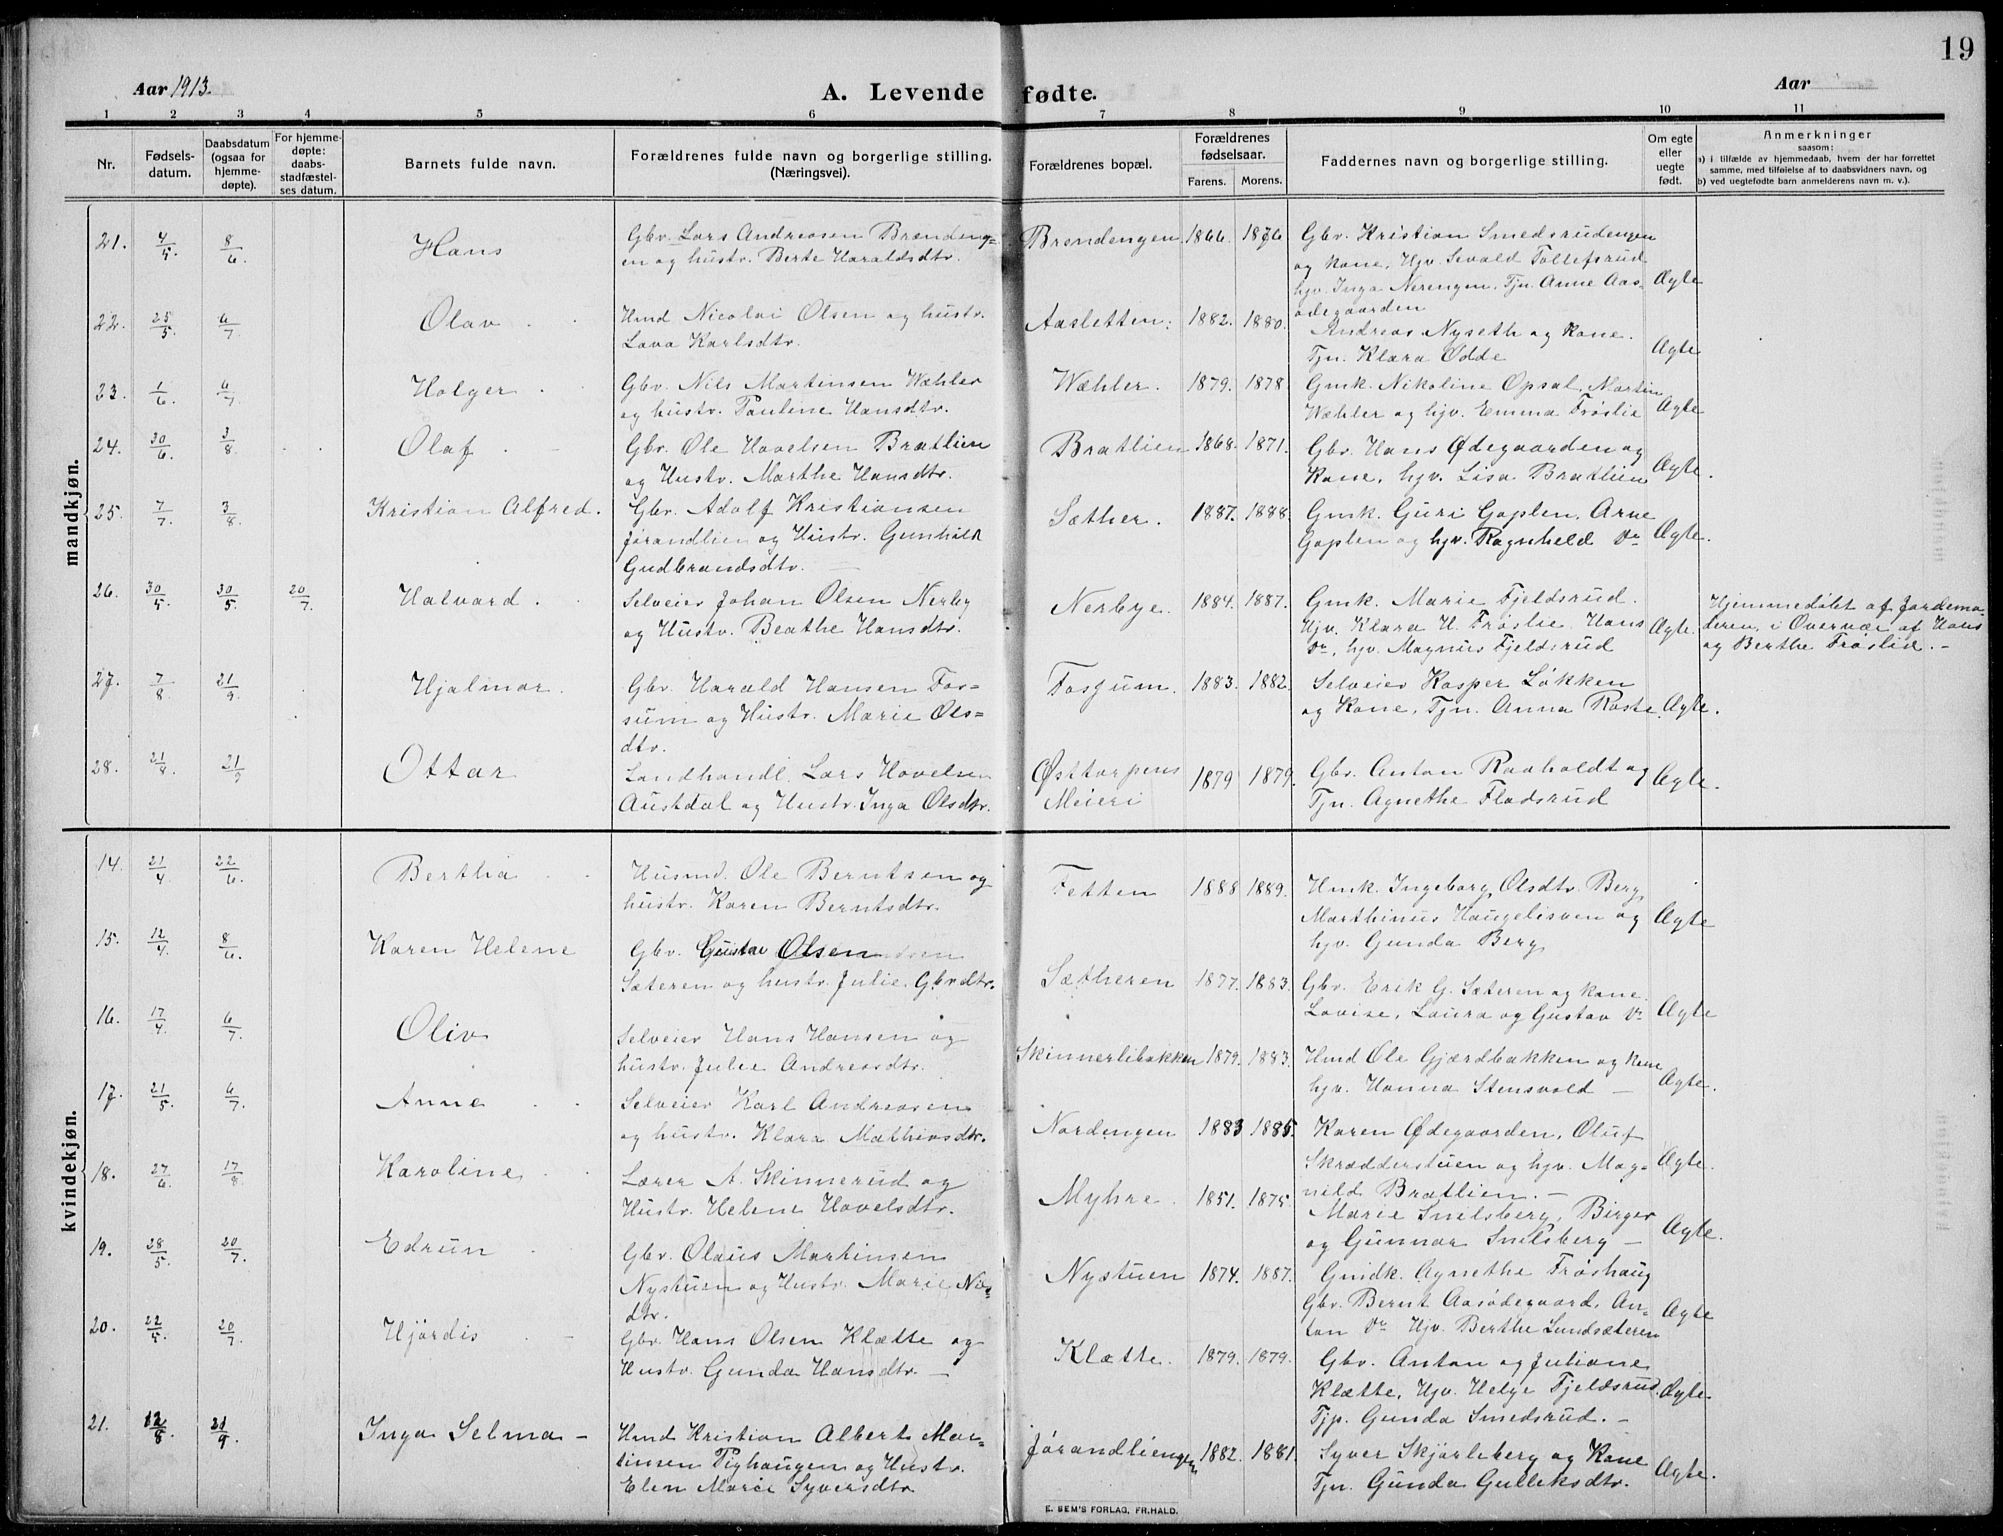 19
Aar 1913.
A. Levende fødte.
Aar
1 2 3 4 5 6 7 8 9 10 11
Nr.
Fødsels-
datum.
Daabsdatum
(ogsaa for
hjemme-
døpte).
For hjemme-
døpte:
daabs-
stadfæstel-
ses datum.
Barnets fulde navn.
Forældrenes fulde navn og borgerlige stilling.
(Næringsvei).
Forældrenes bopæl.
Forældrenes
fødselsaar.
Farens. Morens.
Faddernes navn og borgerlige stilling.
Om egte
eller
uegte
født.
Anmerkninger
saasom:
a) i tilfælde av hjemmedaab, hvem der har forrettet
samme, med tilføielse af to daabsvidners navn, og
b) ved uegtefødte barn anmelderens navn m. v.).
mandkjøn.
21. 4/5 8/6 Hans
Gbr. Lars Andreasen Brændeng-
en og hustr. Berte Haraldsdtr.
Brendengen 1866. 1876
Gbr. Kristian Smedsrudengen
og Kone, Ugv. Sevald Tollefsrud
hgv. Inga Nerengen, Tjn. Anne Aas-
ødegaarden
Ægte
22. 25/5 6/7 Olav
Hmd Nicolai Olsen og hustr.
Lava Karlsdtr.
Aasletten. 1882. 1880.
Andreas Nyseth og Kone.
Tjn. Klara Odde
Ægte
23. 1/6 6/7 Holger
Gbr. Nils Martinsen Wæhler
og hustr. Pauline Hansdtr.
Wæhler. 1879. 1878
Gmk. Nikoline Opsal, Martin
Wæhler og hjv. Emma Frøslie
Ægte
24. 30/6 3/8 Olaf
Gbr. Ole Hovelsen Bratlien
og Hustr. Marthe Hansdtr.
Bratlien 1868. 1871.
Gbr. Hans Ødegaarden og
Kone, hgv. Lisa Bratlien
Ægte.
25. 7/7 3/8 Kristian Alfred.
Gbr. Adolf Kristiansen
Jørandlien og Hustr. Gunhild
Gudbrandsdtr.
Sæther. 1887. 1888.
Gmk. Guri Goplen, Arne
Goplen og hgv. Ragnheld Do
Ægte.
26. 30/5 30/5 20/7 Halvard.
Selveier Johan Olsen Nerby
og Hustr. Beathe Hansdtr.
Nerbye. 1884. 1887.
Gmk. Marie Fjeldsrud.
Ugv. Klara H. Frøslie, Hans
Do, hgv. Magnus Fjeldsrud
Ægte.
Hjemmedøbt af Jordemo-
deren, i Overvær af Hans
og Berthe Frøslie.
27. 7/8 21/9 Hjalmar.
Gbr. Harald Hansen Fos-
sum og Hustr. Marie Ols-
dtr.
Fossum. 1883. 1882.
Selveier Kasper Løkken
og Kone, Tjn. Anna Roste
Ægte.
28. 21/8 21/9 Ottar
Landhandl. Lars Hovelsen
Austdal og Hustr. Inga Olsdtr.
Østtorpens
Meieri
1879 1879.
Gbr. Anton Raaholdt og
Tjn. Agnethe Fladsrud
Ægte.
kvindekjøn.
14. 21/4 22/6 Bertha
Husmd. Ole Berntsen og
hustr. Karen Berntsdtr.
Fetten 1888 1889.
Hmk. Ingeborg Olsdtr. Berg,
Marthinus Haugelisven og
hgv. Gunda Berg
Ægte
15. 12/4 8/6 Karen Helene
Gbr. Gustav Olsen
Sæteren og hustr. Julie Gbrdtr.
Sætheren 1877. 1883.
Gbr. Erik G. Sæteren og kone
Lovise, Laura og Gustav Do
Ægte
16. 17/4 6/7 Oliv
Selveier Hans Hansen og
hustr. Julie Andreasdtr.
Skinnerlibakken 1879. 1883.
Hmd Ole Gjærdbakken og kone
hgv. Hanna Stensvold
Ægte.
17. 21/5 6/7 Anne
Selveier Karl Andreasen
og hustr. Klara Mathiasdtr.
Nordengen 1883 1885.
Karen Ødegaarden, Oluf
Skrædderstuen og hgv. Mag-
nild Bratlien.
Ægte.
18. 27/6 17/8 Karoline
Lærer A. Skinnerud og
Hustr. Helene Hovelsdtr.
Myhre. 1851. 1875.
Marie Snilsberg, Birger
og Gunnar Snilsberg
Ægte.
19. 28/5 20/7 Edrun
Gbr. Olaus Martinsen
Nystuen og Hustr. Marie
dtr.
Nystuen 1874. 1887.
Gmdk. Agnethe Frøshaug
Gbr. Bernt Aasødegaard, An-
ton Do Ugv. Berthe Lundsæteren
Ægte
20. 22/5 20/7 Hjørdis
Gbr. Hans Olsen Klætte og
Hustr. Gunda Hansdtr.
Klætte. 1879. 1879.
Gbr. Anton og Juliane
Klætte, Ugv. Helge Fjeldsrud,
Tjp. Gunda Smedsrud.
Ægte.
21. 12/8 21/9 Inga Selma
Hmd Kristian Albert Mar-
tinsen Pighaugen og Hustr.
Elen Marie Syversdtr
Jørandliengen 1882. 1881.
Syver Skjærleberg og Kone
Tjn. Gunda Gulleksdtr.
Ægte.
E. SEM'S FORLAG, FR.HALD.